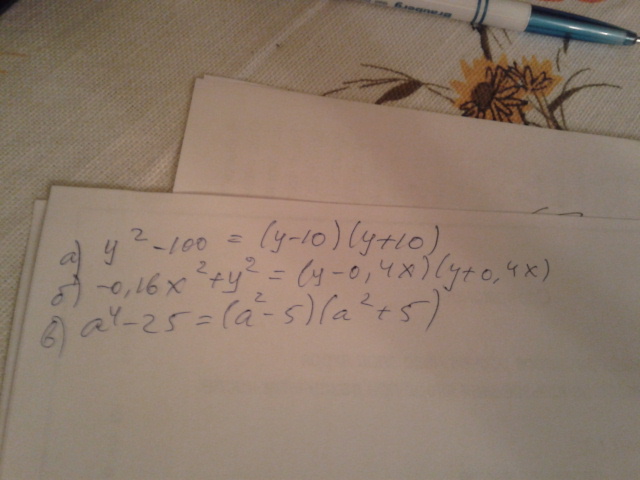 а) y² - 100 = (y-10)(y+10)
б) -0,16x² + y² = (y-0,4x)(y+0,4x)
в) a⁴ - 25 = (a² - 5)(a² + 5)